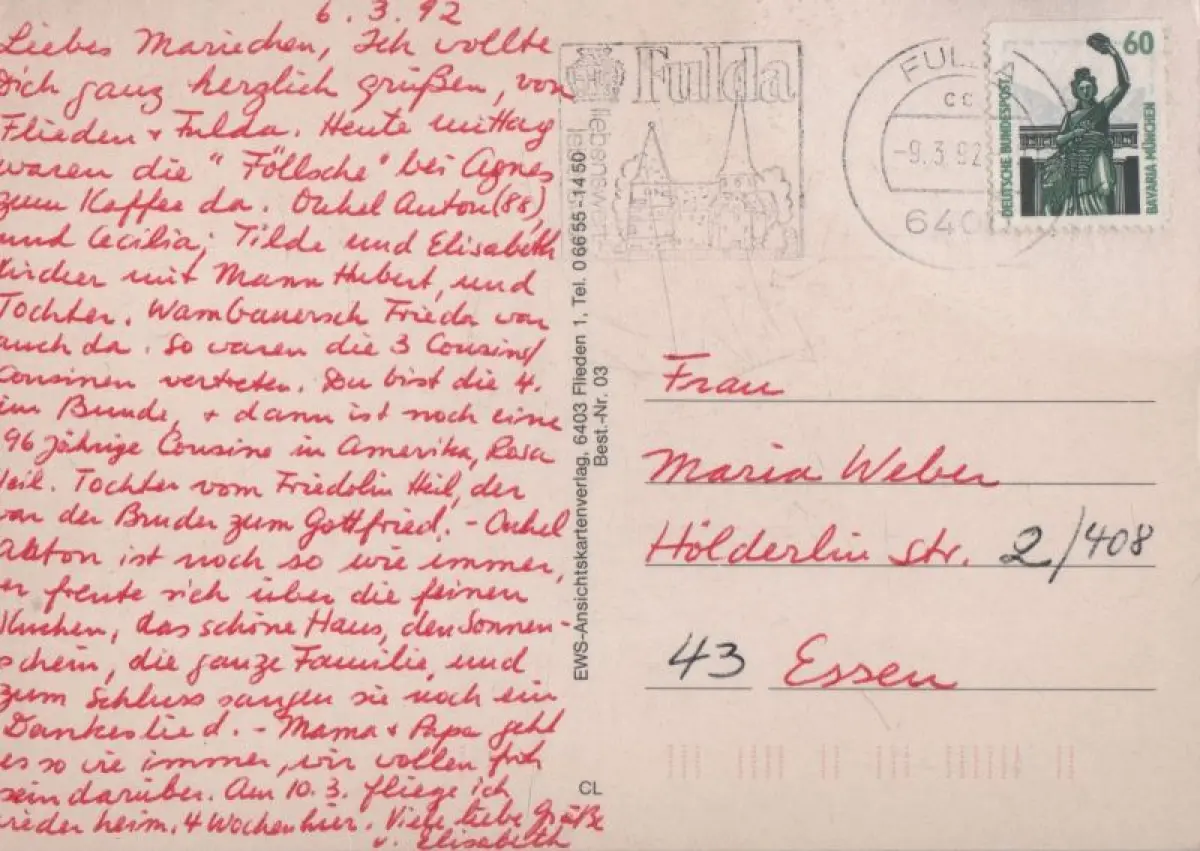 6.3.92
Liebes Mariechen, Ich wollte
Dich ganz herzlich grüßen, von
Flieden + Fulda. Heute mittag
waren die "Föllsche" bei Agnes
zum Kaffee da. Onkel Anton (88)
und Cecilia, Tilde und Elisabeth
mit Mann Hubert, und
Tochter. Wambauersch Frieda war
auch da. So waren die 3 Cousins/
Cousinen vertreten. Du bist die 4.
im Bunde, + dann ist noch eine
96 jährige Cousine in Amerika, Rosa
Heil. Tochter vom Fridolin Heil, der
war der Bruder zum Gottfried. - Onkel
Anton ist noch so wie immer,
er freute sich über die feinen
Kuchen, das schöne Haus, den Sonnen-
schein, die ganze Familie, und
zum Schluss sangen sie noch ein
Dankeslied. - Mama + Papa geht
es so wie immer, wir wollen froh
sein darüber. Am 10.3. fliege ich
wieder heim. 4 Wochen hier. Viele liebe Grüße
v. Elisabeth
EWS-Ansichtskartenverlag, 6403 Flieden 1, Tel. 06655-1450
Best.-Nr. 03
CL
Fulda
liebenswert
FUL
cc
-9.3.92
640
60
DEUTSCHE BUNDESPOST
BAVARIA MÜNCHEN
Frau
Maria Weber
Hölderlin str. 2/408
43 Essen